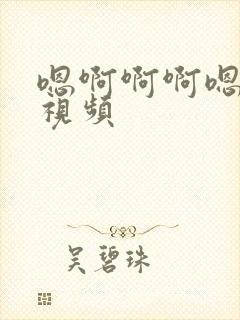 嗯啊啊啊嗯
视频
吴碧珠